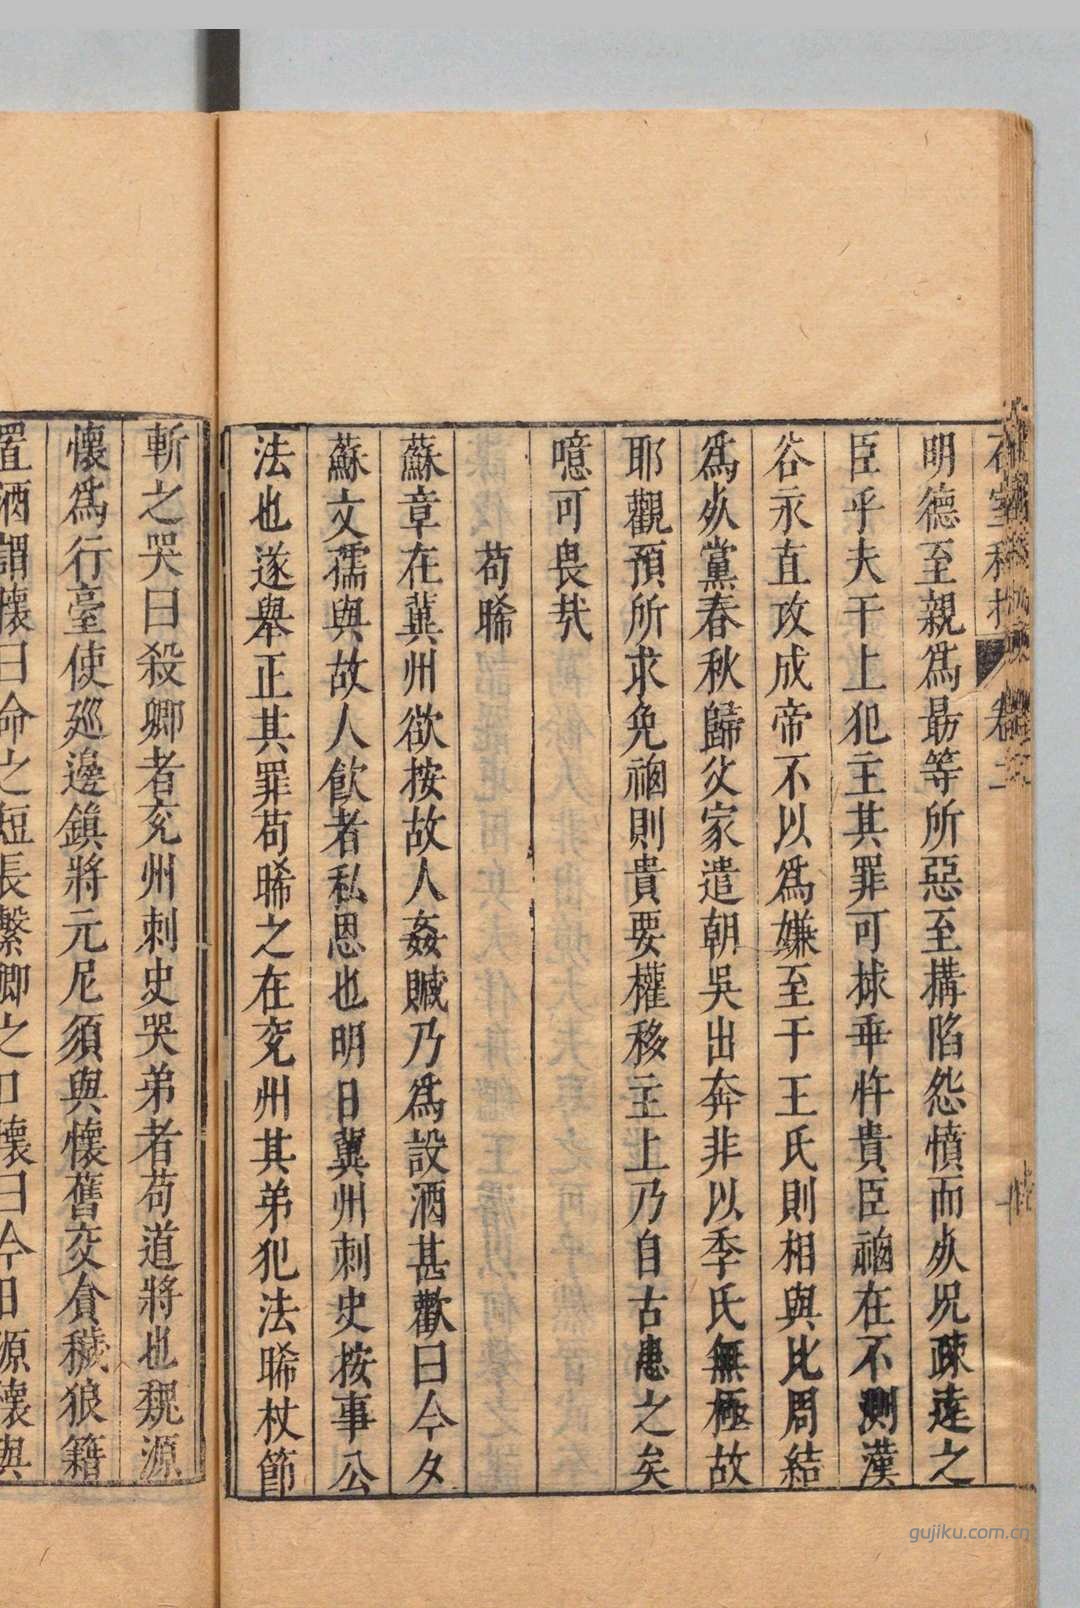 明德至親爲勗等所惡至搆陷怨憤而死况疎遠之
臣乎夫干上犯主其罪可捄乖忤貴臣禍在不測漢
谷永直攻成帝不以爲嫌至于王氏則相與比周結
爲死黨春秋歸父家遣朝吳出奔非以季氏無極故
耶觀預所求免禍則貴要權移主上乃自古患之矣
噫可畏哉
苟晞
蘇章在冀州欲按故人姦贓乃爲設酒甚歡曰今夕
蘇文孺與故人飲者私恩也明日冀州刺史按事公
法也遂舉正其罪苟晞之在兖州其弟犯法晞杖節
斬之哭曰殺卿者兖州刺史哭弟者苟道將也魏源
懷爲行臺使廵邊鎮將元尼須與懷舊交貪穢狼籍
置酒謂懷曰命之短長繫卿之口懷曰今日源懷與
gujiku.com.cn